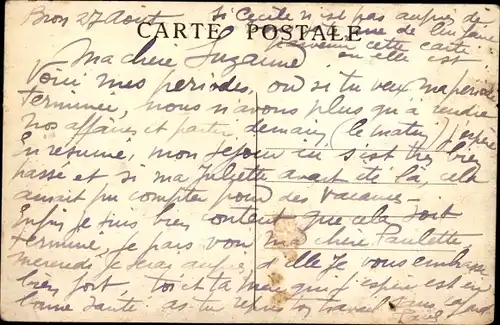 Bron 27 Août
Si Cécile n'est pas auprès de
CARTE POSTALE
parvenir cette carte
où elle est
Ma chère Suzanne
Voici mes périodes, ou si tu veux ma période
terminée, nous n'avons plus qu'à rendre
nos affaires et partir demain (le matin) j'espère
En résumé, mon séjour ici s'est très bien
passé et si ma Juliette avait été là, cela
aurait pu compter pour des vacances -
Enfin je suis bien content que cela soit
terminé, je vais voir ma chère Paulette,
mercredi je serai auprès d'elle Je vous embrasse
bien fort toi et ta mère que j'espère est en
bonne santé as-tu repris ton travail